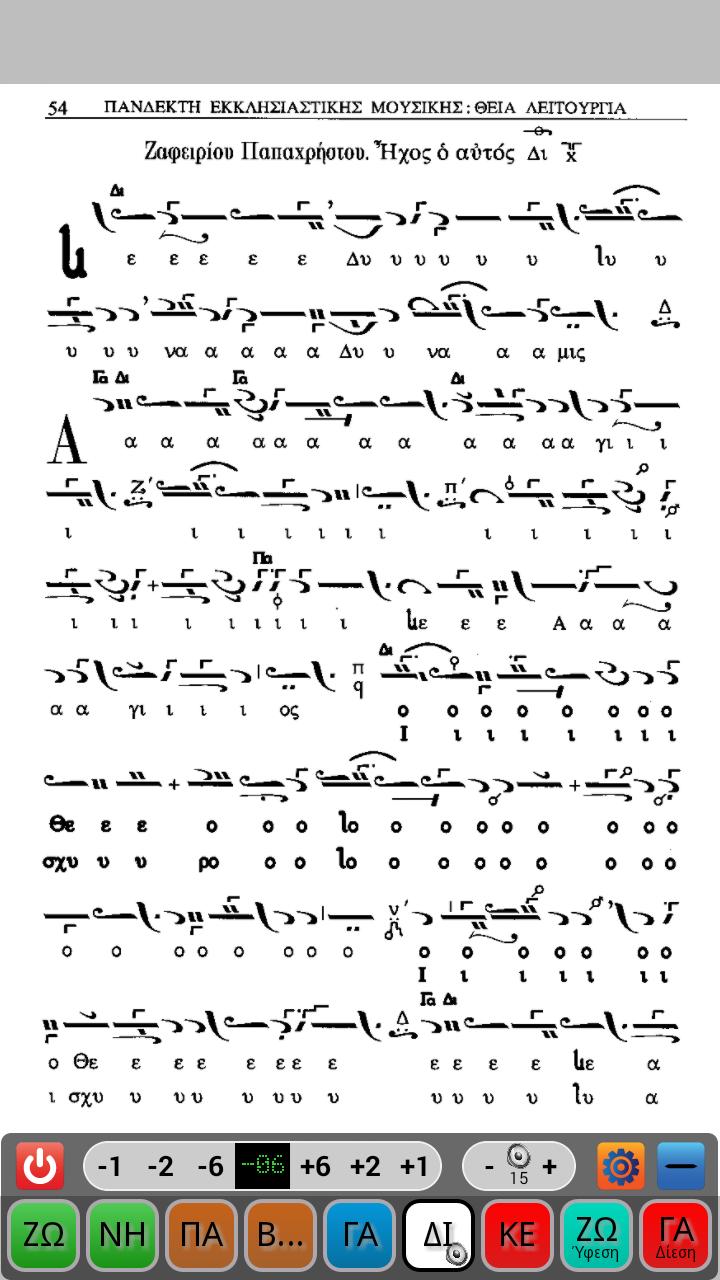 54 ΠΑΝΔΕΚΤΗ ΕΚΚΛΗΣΙΑΣΤΙΚΗΣ ΜΟΥΣΙΚΗΣ: ΘΕΙΑ ΛΕΙΤΟΥΡΓΙΑ
Ζαφειρίου Παπαχρήστου. Ἦχος ὁ αὐτός Δι χ
Δι
ε ε ε ε ε Δυ υ υ υ υ υ υ υ
υ υ υ να α α α α Δυ υ να α α μις
Δ
Γα Δι Γα Δι
Α α α α α α α α α α α α α γι ι ι
Ζ΄ π΄
ι ι ι ι ι ι ι ι ι ι ι ι
Πα
ι ι ι ι ι ι ι ι ι ε ε Α α α α
Δι
π q
α α γι ι ι ι ος ο ο ο ο ο ο ο ο
Ι ι ι ι ι ι ι ι
Θε ε ε ο ο ο ο ο ο ο ο ο ο ο
σχυ υ υ ρο ο ο ο ο ο ο ο ο ο ο
ν΄
ο ο ο ο ο ο ο ο ο ο ο ο ο ο
Ι ι ι ι ι ι ι
Γα Δι
Δ
ο Θε ε ε ε ε ε ε ε ε ε ε ε α
ι σχυ υ υ υ υ υ υ υ υ υ υ υ α
-1 -2 -6 -06 +6 +2 +1 - 15 +
ΖΩ ΝΗ ΠΑ Β... ΓΑ ΔΙ ΚΕ ΖΩ Ύφεση ΓΑ Δίεση